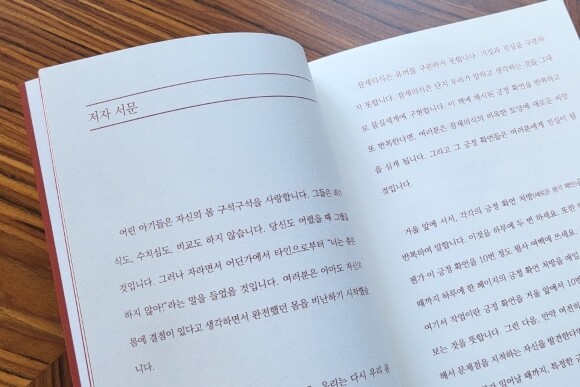 저자 서문
어린 아기들은 자신의 몸 구석구석을 사랑합니다. 그들은
식도, 수치심도, 비교도 하지 않습니다. 당신도 어렸을 때 그랬을
것입니다. 그러나 자라면서 어딘가에서 타인으로부터 "너는
하지 않아!"라는 말을 들었을 것입니다. 여러분은 아마도 자신의
몸에 결점이 있다고 생각하면서 완전했던 몸을 비난하기 시작했을
니다.
우리는 다시 우리
잠재의식은 유머를 구분하지 못합니다. 거짓과 진실을 구분하
지 못합니다. 잠재의식은 단지 우리가 말하고 생각하는 것을 그대
로 몸을에게 구현합니다. 이 책에 제시된 긍정 확언을 반복하고
또 반복한다면, 여러분은 잠재의식의 비옥한 토양에 새로운 씨앗
을 심게 됩니다. 그리고 그 긍정 확언들은 여러분에게 진실이 될
것입니다.
거울 앞에 서서, 각각의 긍정 확언 처방
반복하여 말합니다. 이것을 하루에 두 번 하세요. 또한
젠가 이 긍정 확언을 10번 정도 필사 여백에 쓰세요.
때까지 하루에 한 페이지의 긍정 확언 처방을 매일
여기서 작업이란 긍정 확언을 거울 앞에서 10번
보는 것을 뜻합니다. 그런 다음, 만약 여전히
해서 문제점을 지적하는 자신을 발견한다
일어날 때까지, 특정한 긍